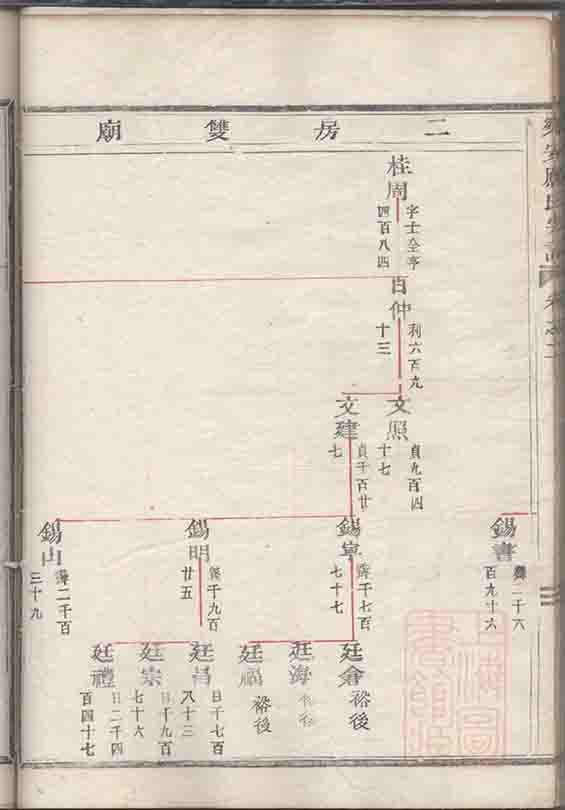 二房雙廟
桂周
字士全亨
四百八四
白仲
利六百九
十三
文照
貞九百四
十七
文建
貞千百廿
七
錫書
二千六
百九十六
錫寧
千七百
七十七
錫明
千九百
廿五
錫山
二千百
三十九
廷會
裕後
廷海
廷福
裕後
廷昌
日千七百
八十三
廷崇
日千九百
七十六
廷禮
日二千四
百四十七
上海圖書館